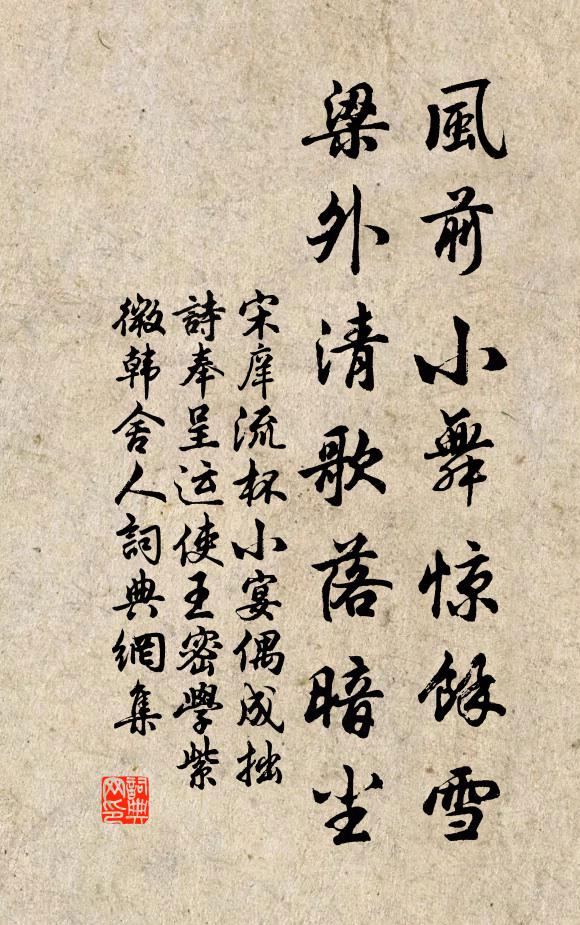 風前小舞惊餘雪
梁外清歌落暗尘
宋庠流杯小宴偶成拙
詩奉呈运使王密學紫
微韩舍人詞典網集
詞典网印